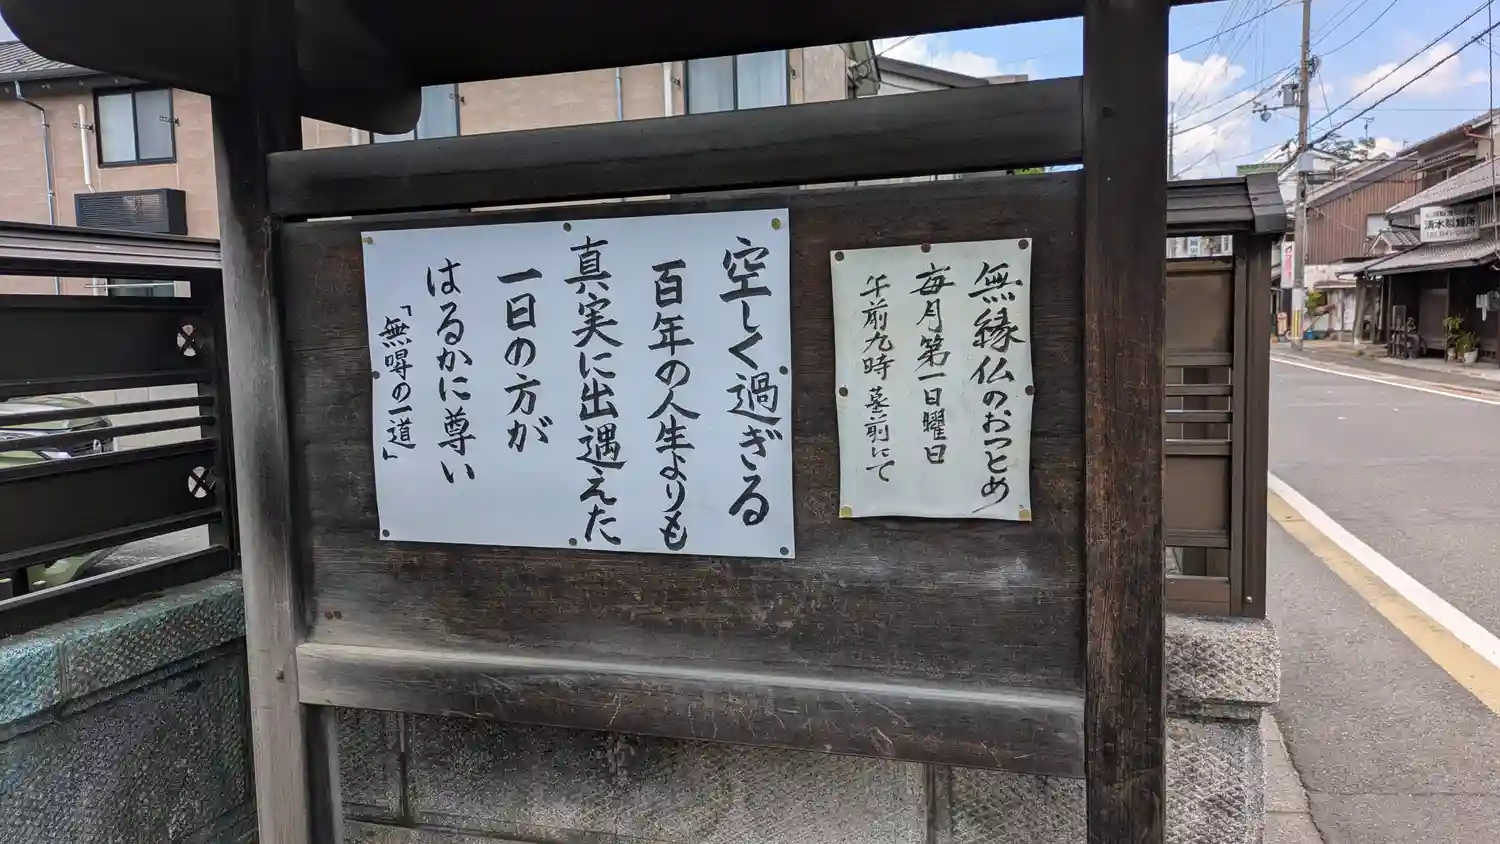 空しく過ぎる
百年の人生よりも
真実に出遇えた
一日の方が
はるかに尊い
「無㝵の一道」
無縁仏のおつとめ
毎月第一日曜日
午前九時 墓前にて
清水製麺所